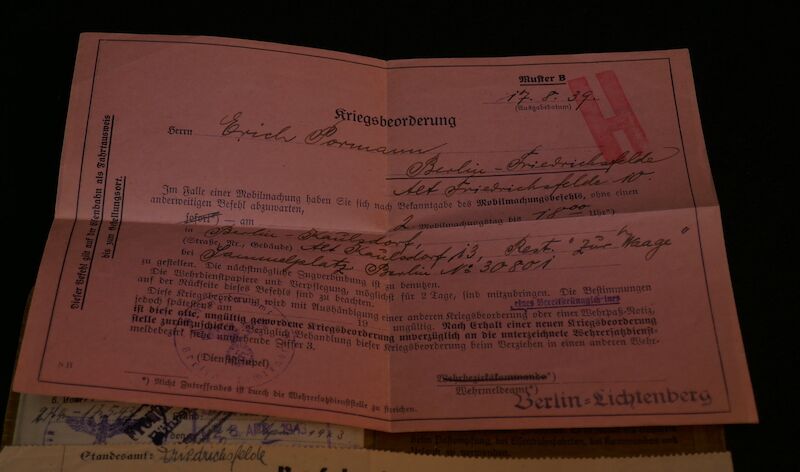 Muster B
17. 8. 39.
(Ausgabedatum)
H
Kriegsbeorderung
Herrn Erich Pormann
Berlin-Friedrichsfelde
Alt Friedrichsfelde
Im Falle einer Mobilmachung haben Sie sich nach Bekanntgabe des Mobilmachungsbefehls, ohne einen
anderweitigen Befehl abzuwarten,
sofort*) — am 2. Mobilmachungstag bis 18 00 Uhr*)
in Berlin-Kaulsdorf,
(Straße, Nr., Gebäude) Alt Kaulsdorf 13, Rest. "Zur Waage"
bei Sammelplatz Berlin No 30801
zu gestellen. Die nächstmögliche Zugverbindung ist zu benutzen.
Die Wehrdienstpapiere und Verpflegung, möglichst für 2 Tage, sind mitzubringen. Die Bestimmungen
auf der Rückseite dieses Befehls sind zu beachten.
Diese Kriegsbeorderung wird mit Aushändigung einer anderen Kriegsbeorderung oder einer Wehrpaß-Notiz,
jedoch spätestens am 19 ungültig. Nach Erhalt einer neuen Kriegsbeorderung
ist diese alte, ungültig gewordene Kriegsbeorderung unverzüglich an die unterzeichnete Wehrersatzdienst-
stelle zurückzuschicken. Bezüglich Behandlung dieser Kriegsbeorderung beim Verziehen in einen anderen Wehr-
meldebezirk siehe umstehende Ziffer 3.
(Dienststempel)
(Wehrbezirkskommando*)
Wehrmeldeamt*)
Berlin-Lichtenberg
*) Nicht Zutreffendes ist durch die Wehrersatzdienststelle zu streichen.
Dieser Befehl gilt auf der Eisenbahn als Fahrtausweis
bis zum Gestellungsort.
Standesamt: Friedrichsfelde